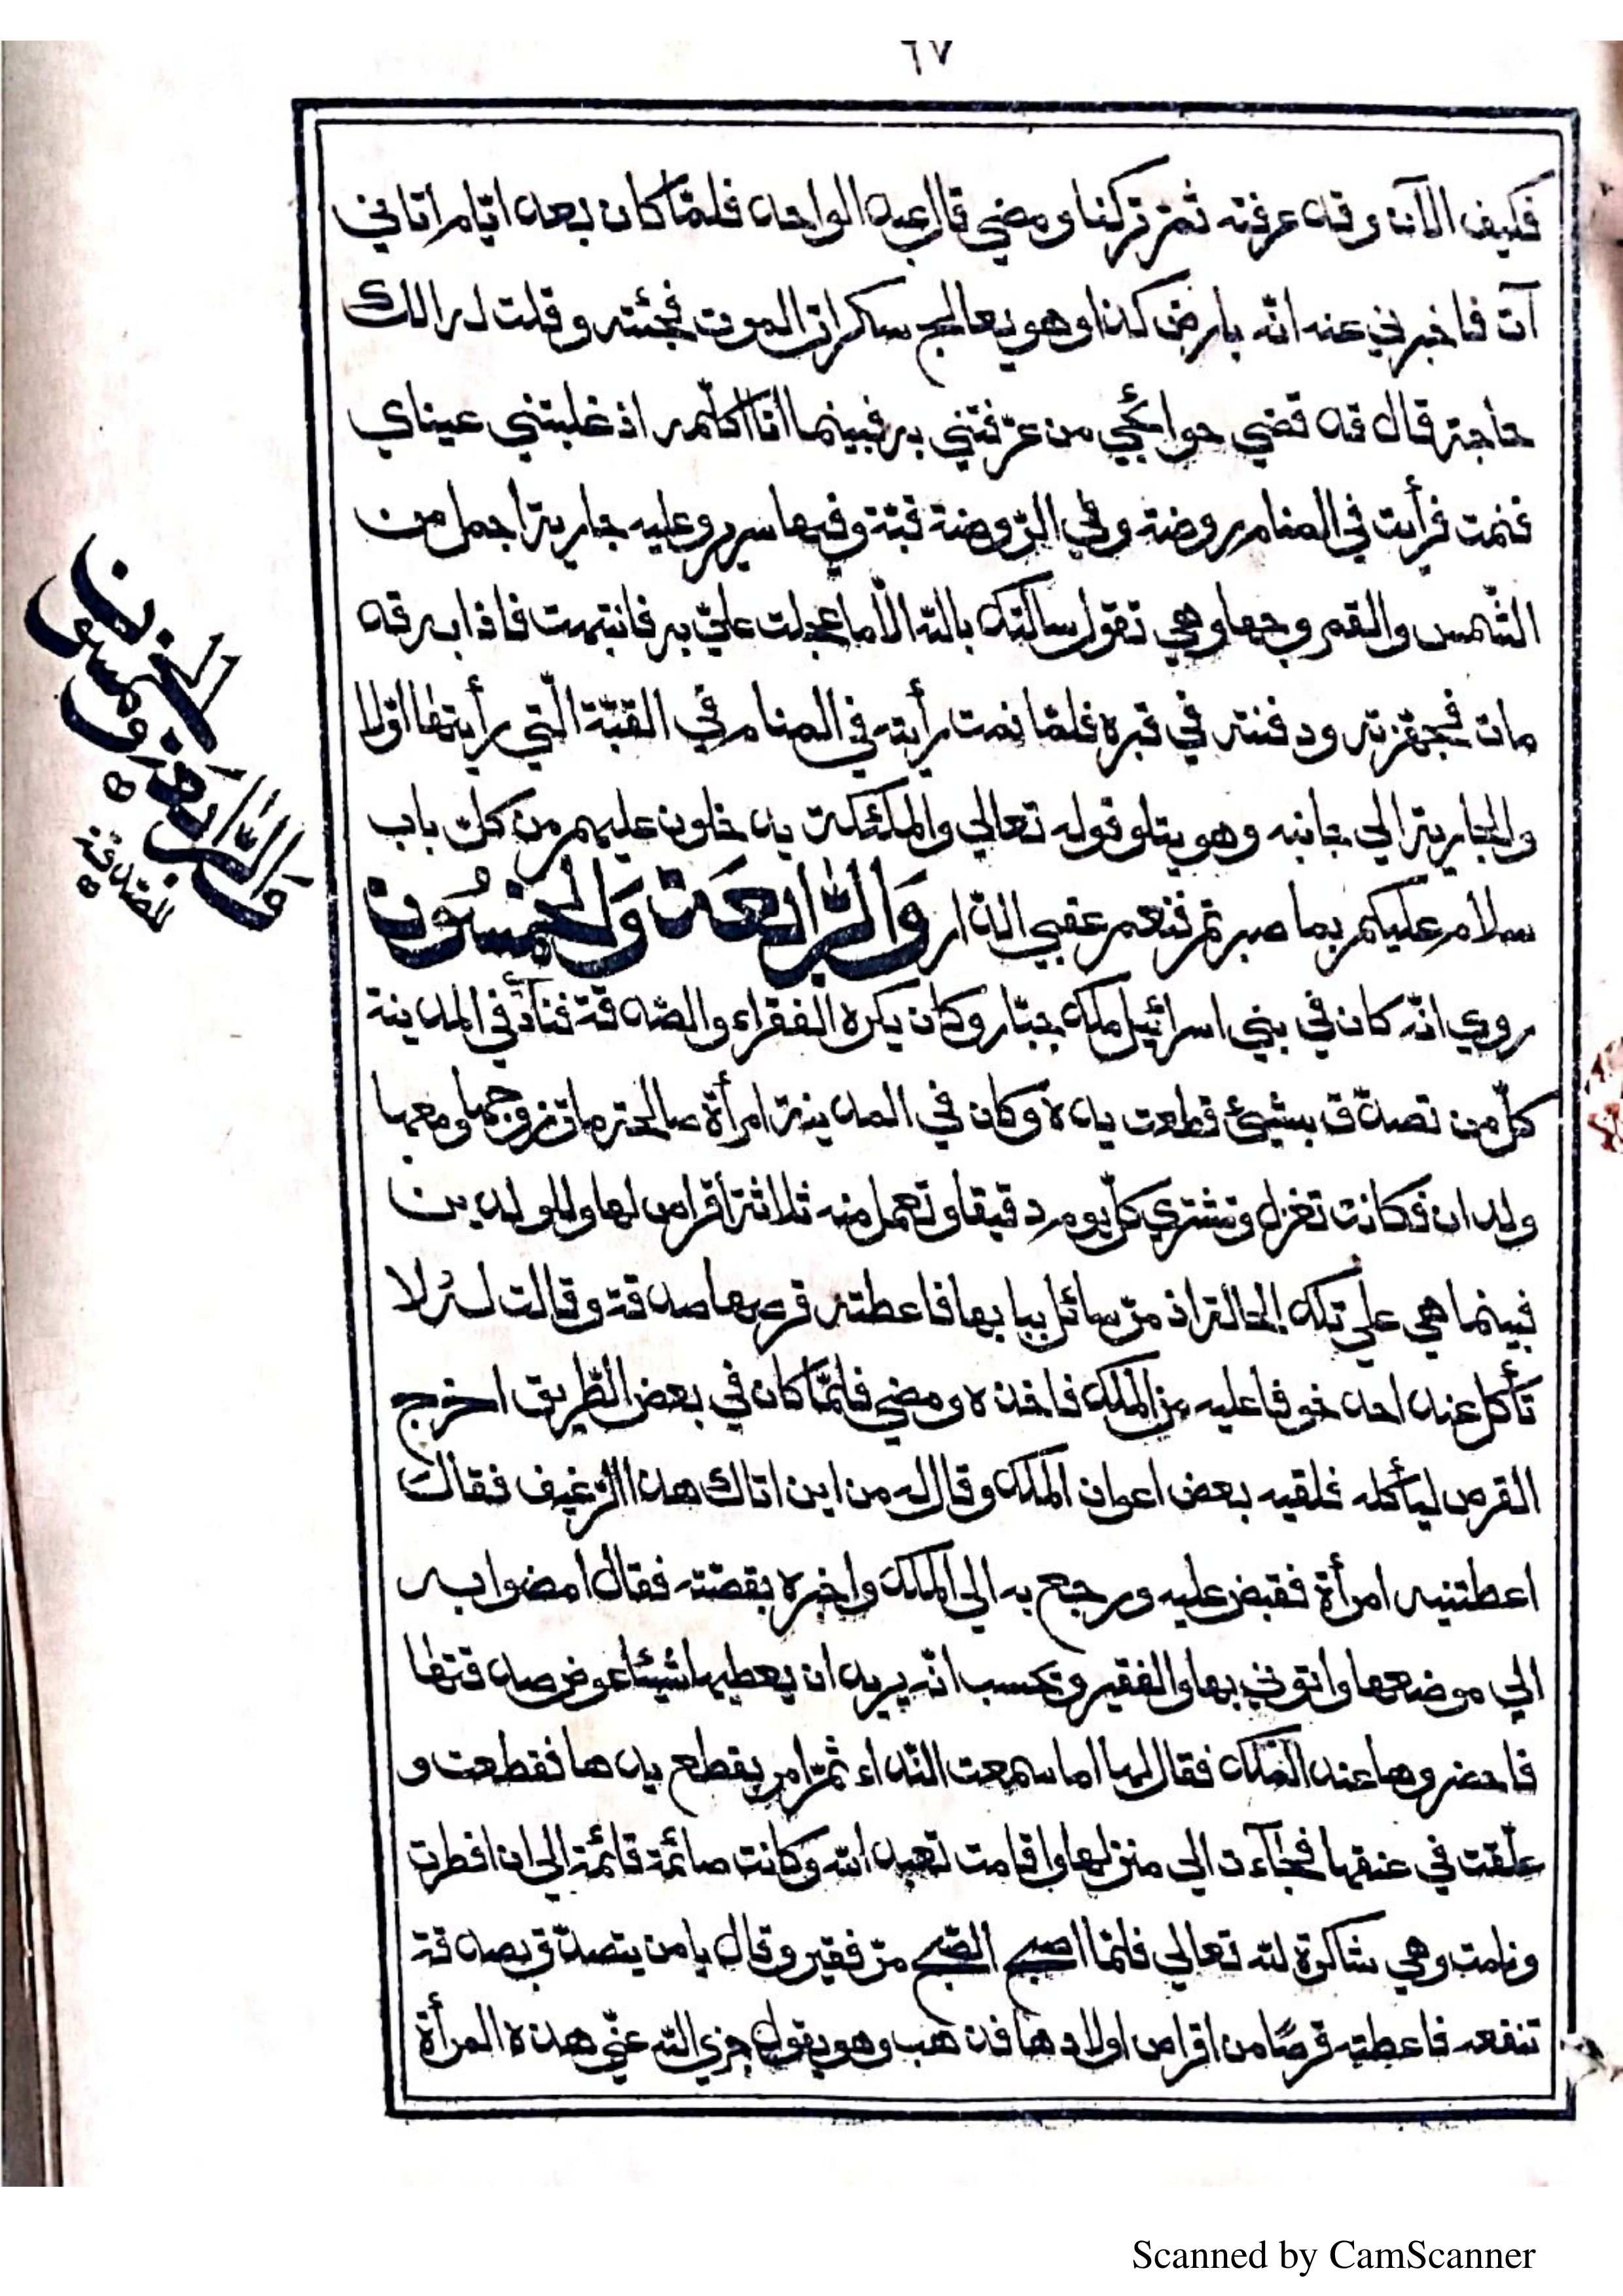 ٦٧
فكيف الآن وقد عرفته ثمّ تركنا ومضي قال عبد الواحد فلمّا كان بعد ايّام اتاني
آت فاخبرني عنه انّه بارض كذا وهو يعالج سكرات الموت فجئته وقلت له الك
حاجة قال قد قضي حوائجي من عرّفتني به فبينما انا اكلّمه اذ غلبتني عيناي
فنمت فرأيت في المنام روضة وفي الرّوضة قبّة وفيها سرير وعليه جارية اجمل من
الشّمس والقمر وجها وهي تقول سالتك بالله الّا ما عجلت عليّ به فانتبهت فاذا به قد
مات فجهّزته ودفنته في قبره فلمّا نمت رأيته في المنام في القبّة الّتي رأيتها اوّلا
والجارية الي جانبه وهو يتلو قوله تعالي والملئكة يدخلون عليهم من كلّ باب
سلام عليكم بما صبرتم فنعم عقبي الدّار وَالرَّابِعَة وَالخَمسُون
روي انّه كان في بني اسرائيل ملك جبّار وكان يكره الفقراء والصّدقة فنادٰي في المدينة
كلّ من تصدّق بشيئ قطعت يده وكان في المدينة امرأة صالحة مات زوجها ومعها
ولدان فكانت تغزل وتشتري كلّ يوم دقيقا وتعمل منه ثلاثة اقراص لها وللولدين
فبينما هي علي تلك الحالة اذ مرّ سائل ببابها فاعطته قرصها صدقة وقالت له لا
تأكل عند احد خوفا عليه من الملك فاخذه ومضي فلمّا كان في بعض الطّريق اخرج
القرص ليأكله فلقيه بعض اعوان الملك وقال له من اين اتاك هذا الرّغيف فقال
اعطتنيه امرأة فقبض عليه ورجع به الي الملك واخبره بقصّته فقال امضوا به
الي موضعها واتوني بها والفقير وتحسب انّه يريد ان يعطيها شيئا عوض صدقتها
فاحضروها عند الملك فقال لها اما سمعت النّداء ثمّ امر بقطع يدها فقطعت و
علّقت في عنقها فجآءت الي منزلها واقامت تعبد الله وكانت صائمة قائمة الي ان افطرت
ونامت وهي شاكرة لله تعالي فلمّا اصبح الصّبح مرّ فقير وقال يا من يتصدّق بصدقة
تنفعه فاعطته قرصًا من اقراص اولادها فذهب وهو يقول جزي الله عنّي هذه المرأة
وَالرَّابعة
والخمسون
للصّدقة
Scanned by CamScanner